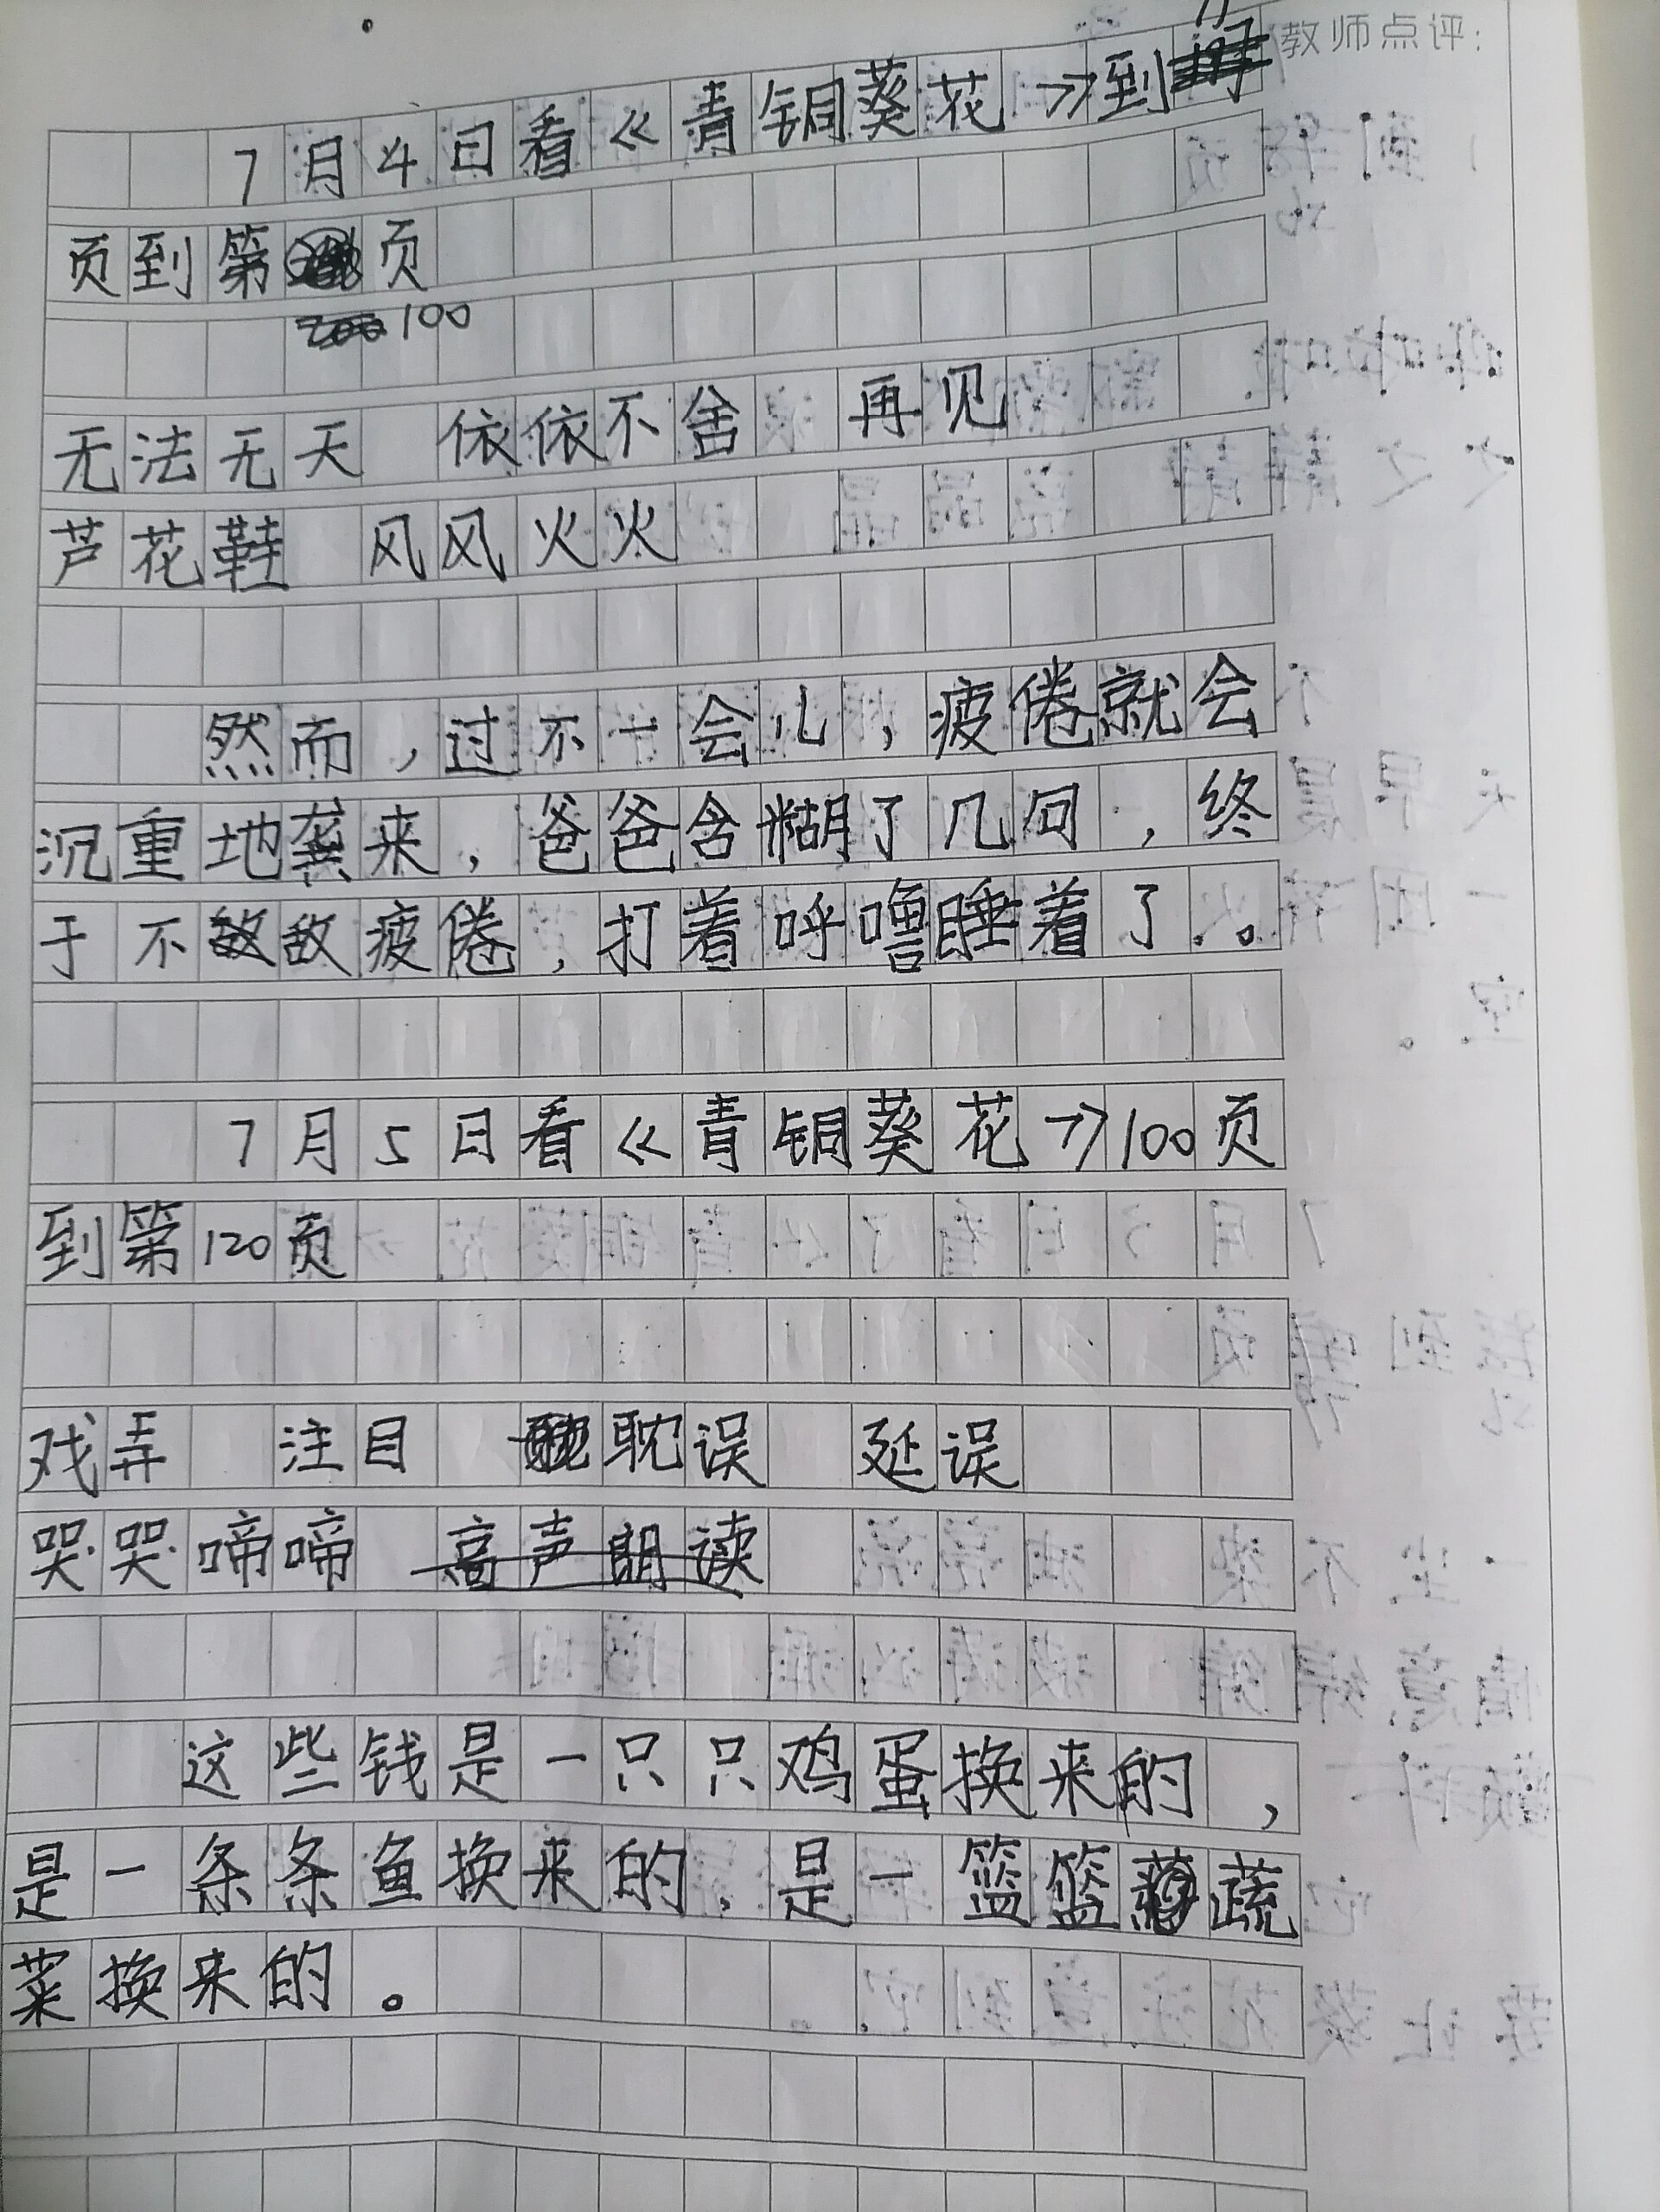 教师点评:
7月4日看《青铜葵花》到
页到第页
100
无法无天 依依不舍 再见
芦花鞋 风风火火
然而,过不一会儿,疲倦就会
沉重地袭来,爸爸含糊了几回,终
于不敌疲倦,打着呼噜睡着了。
7月5日看《青铜葵花》100页
到第120页
戏弄 注目 耽误 延误
哭哭啼啼 高声朗读
这些钱是一只只鸡蛋换来的,
是一条条鱼换来的,是一篮篮蔬
菜换来的。